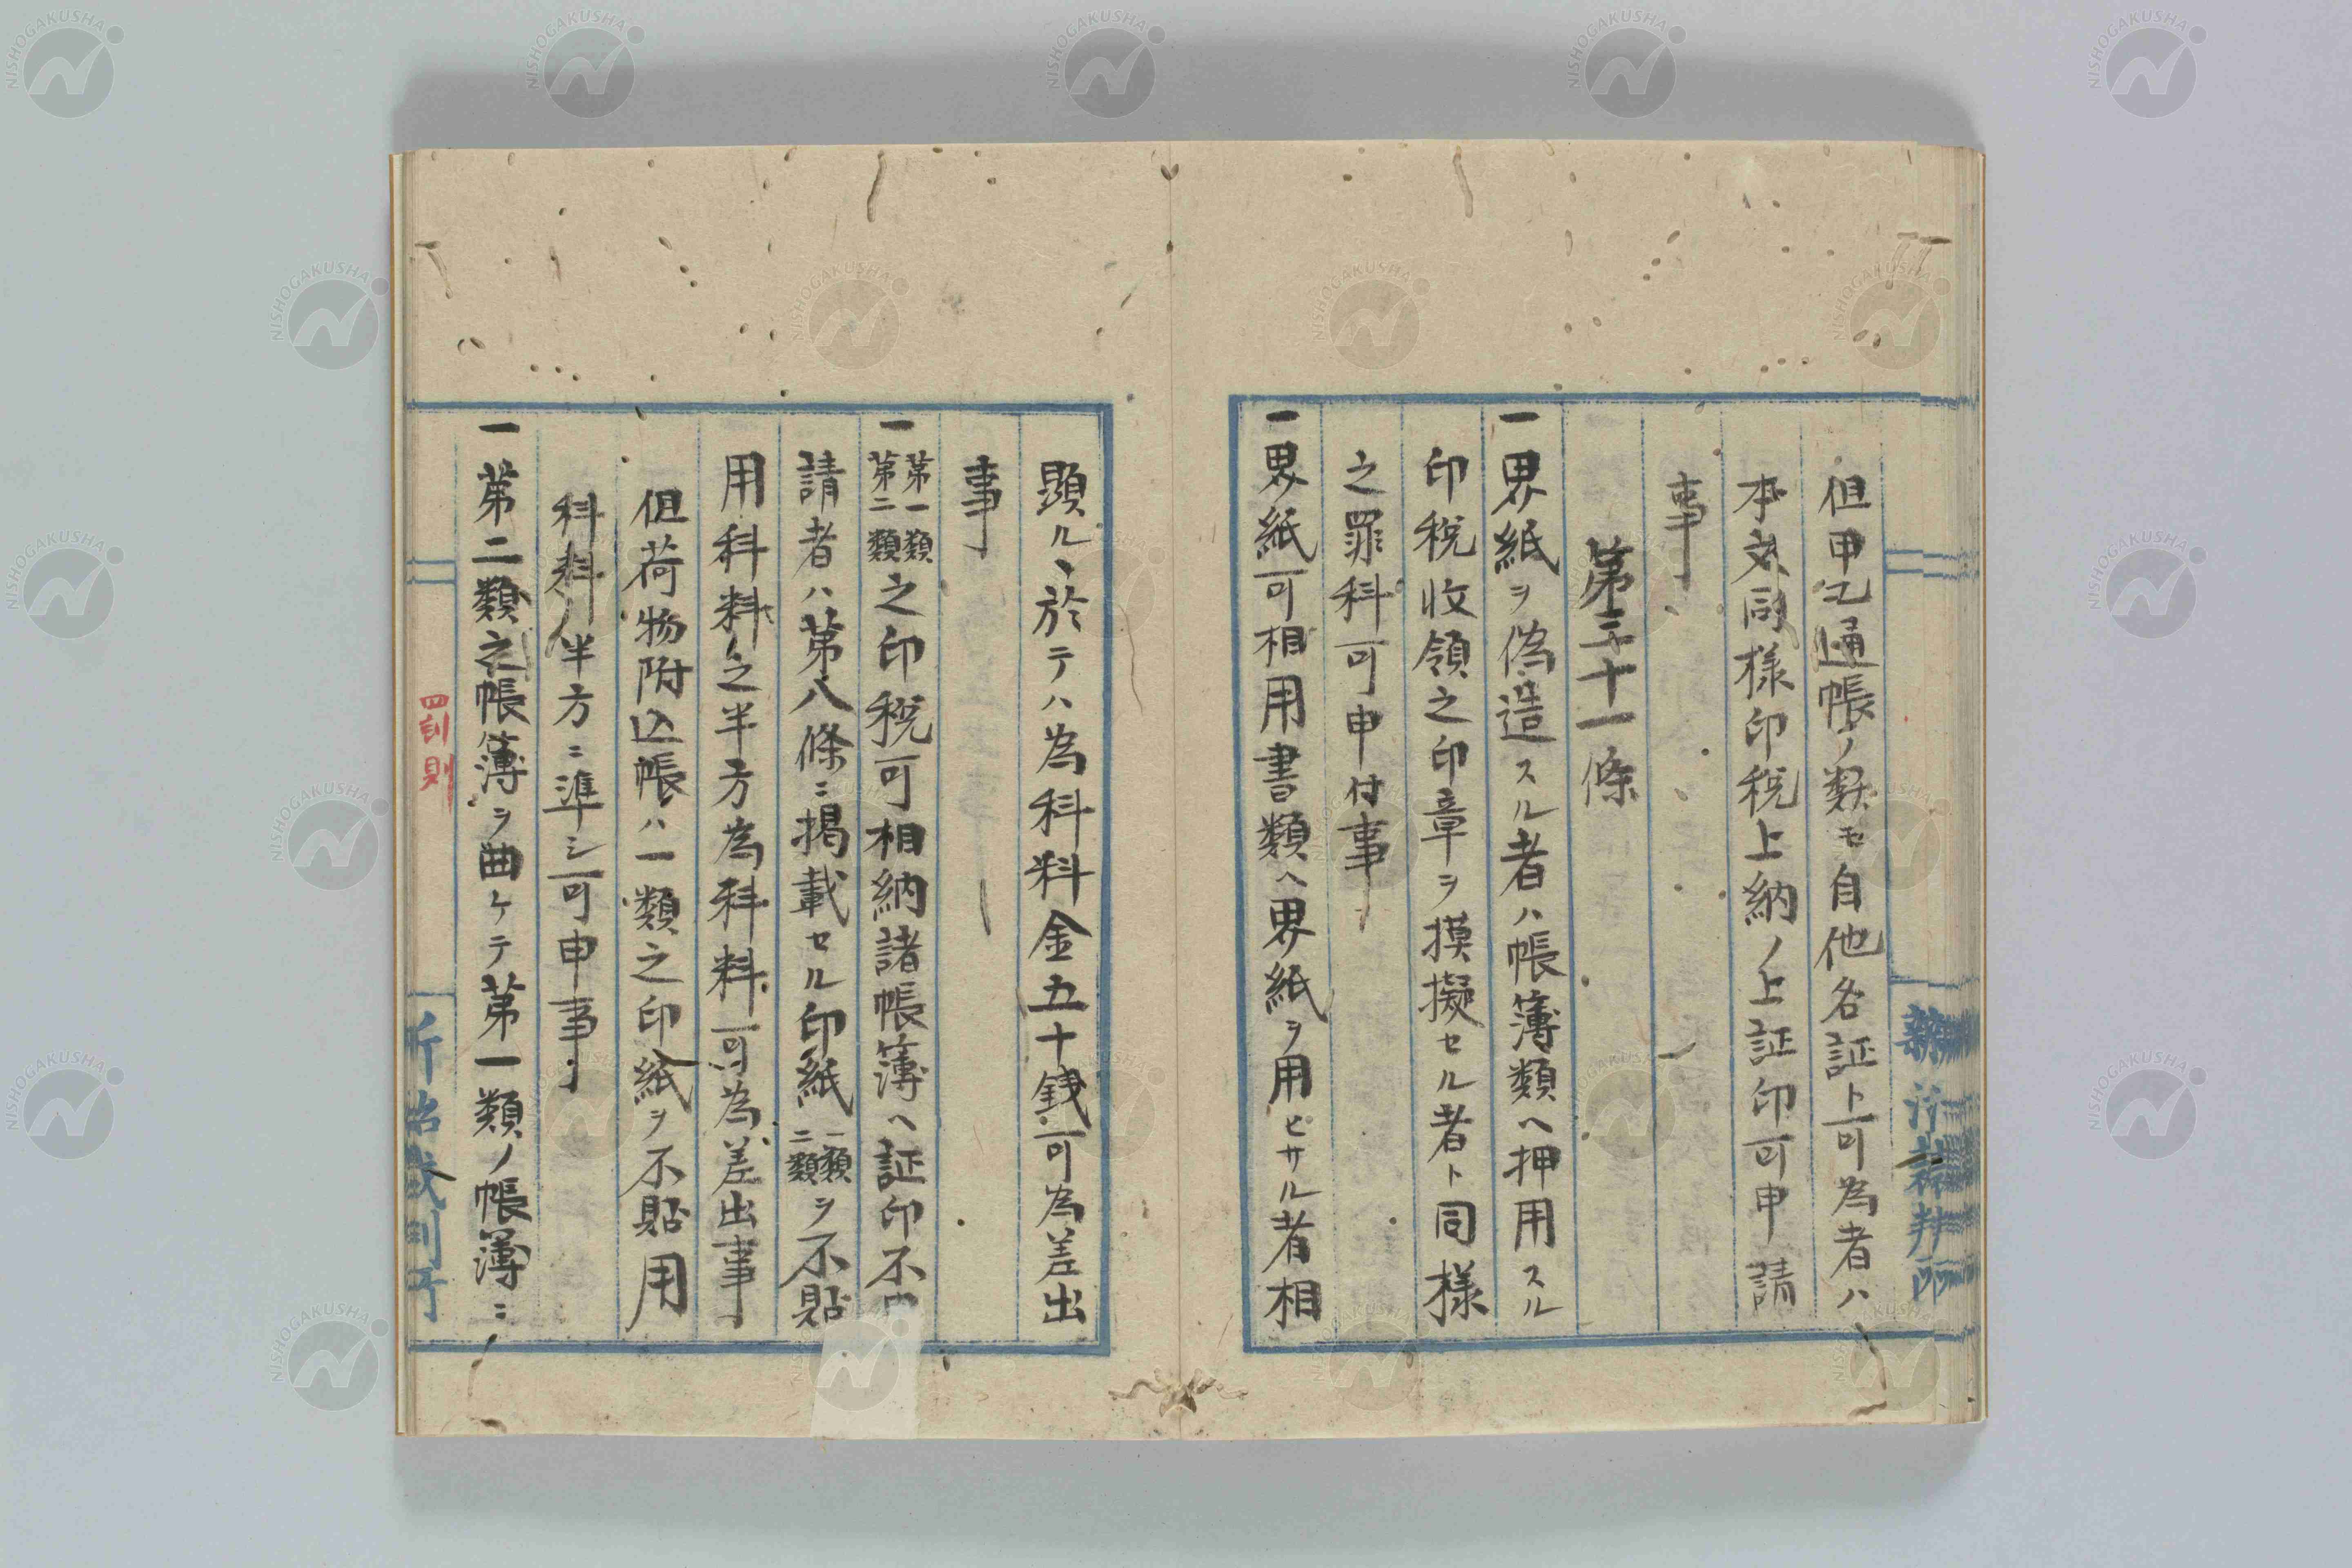 但甲乙通帳ノ数モ自他各証ト可為者ハ
本文同様印税上納ノ上証印可申請
事
第三十一條
一界紙ヲ偽造スル者ハ帳簿類ヘ押用スル
印税收領之印章ヲ摸擬セル者ト同様
之罪科可申付事
一界紙可相用書類ヘ界紙ヲ用ヒサル者相
顕ルヽ於テハ為科料金五十銭可為差出
事
一第一類第二類之印税可相納諸帳簿ヘ証印不
請者ハ第八條ニ掲載セル印紙一類二類ヲ不貼
用科料之半方為科料可為差出事
但荷物附込帳ハ一類之印紙ヲ不貼用
科料ノ半方ニ準シ可申事
一第二類之帳簿ヲ曲ケテ第一類ノ帳簿ニ
罰則
NISHOGAKUSHA